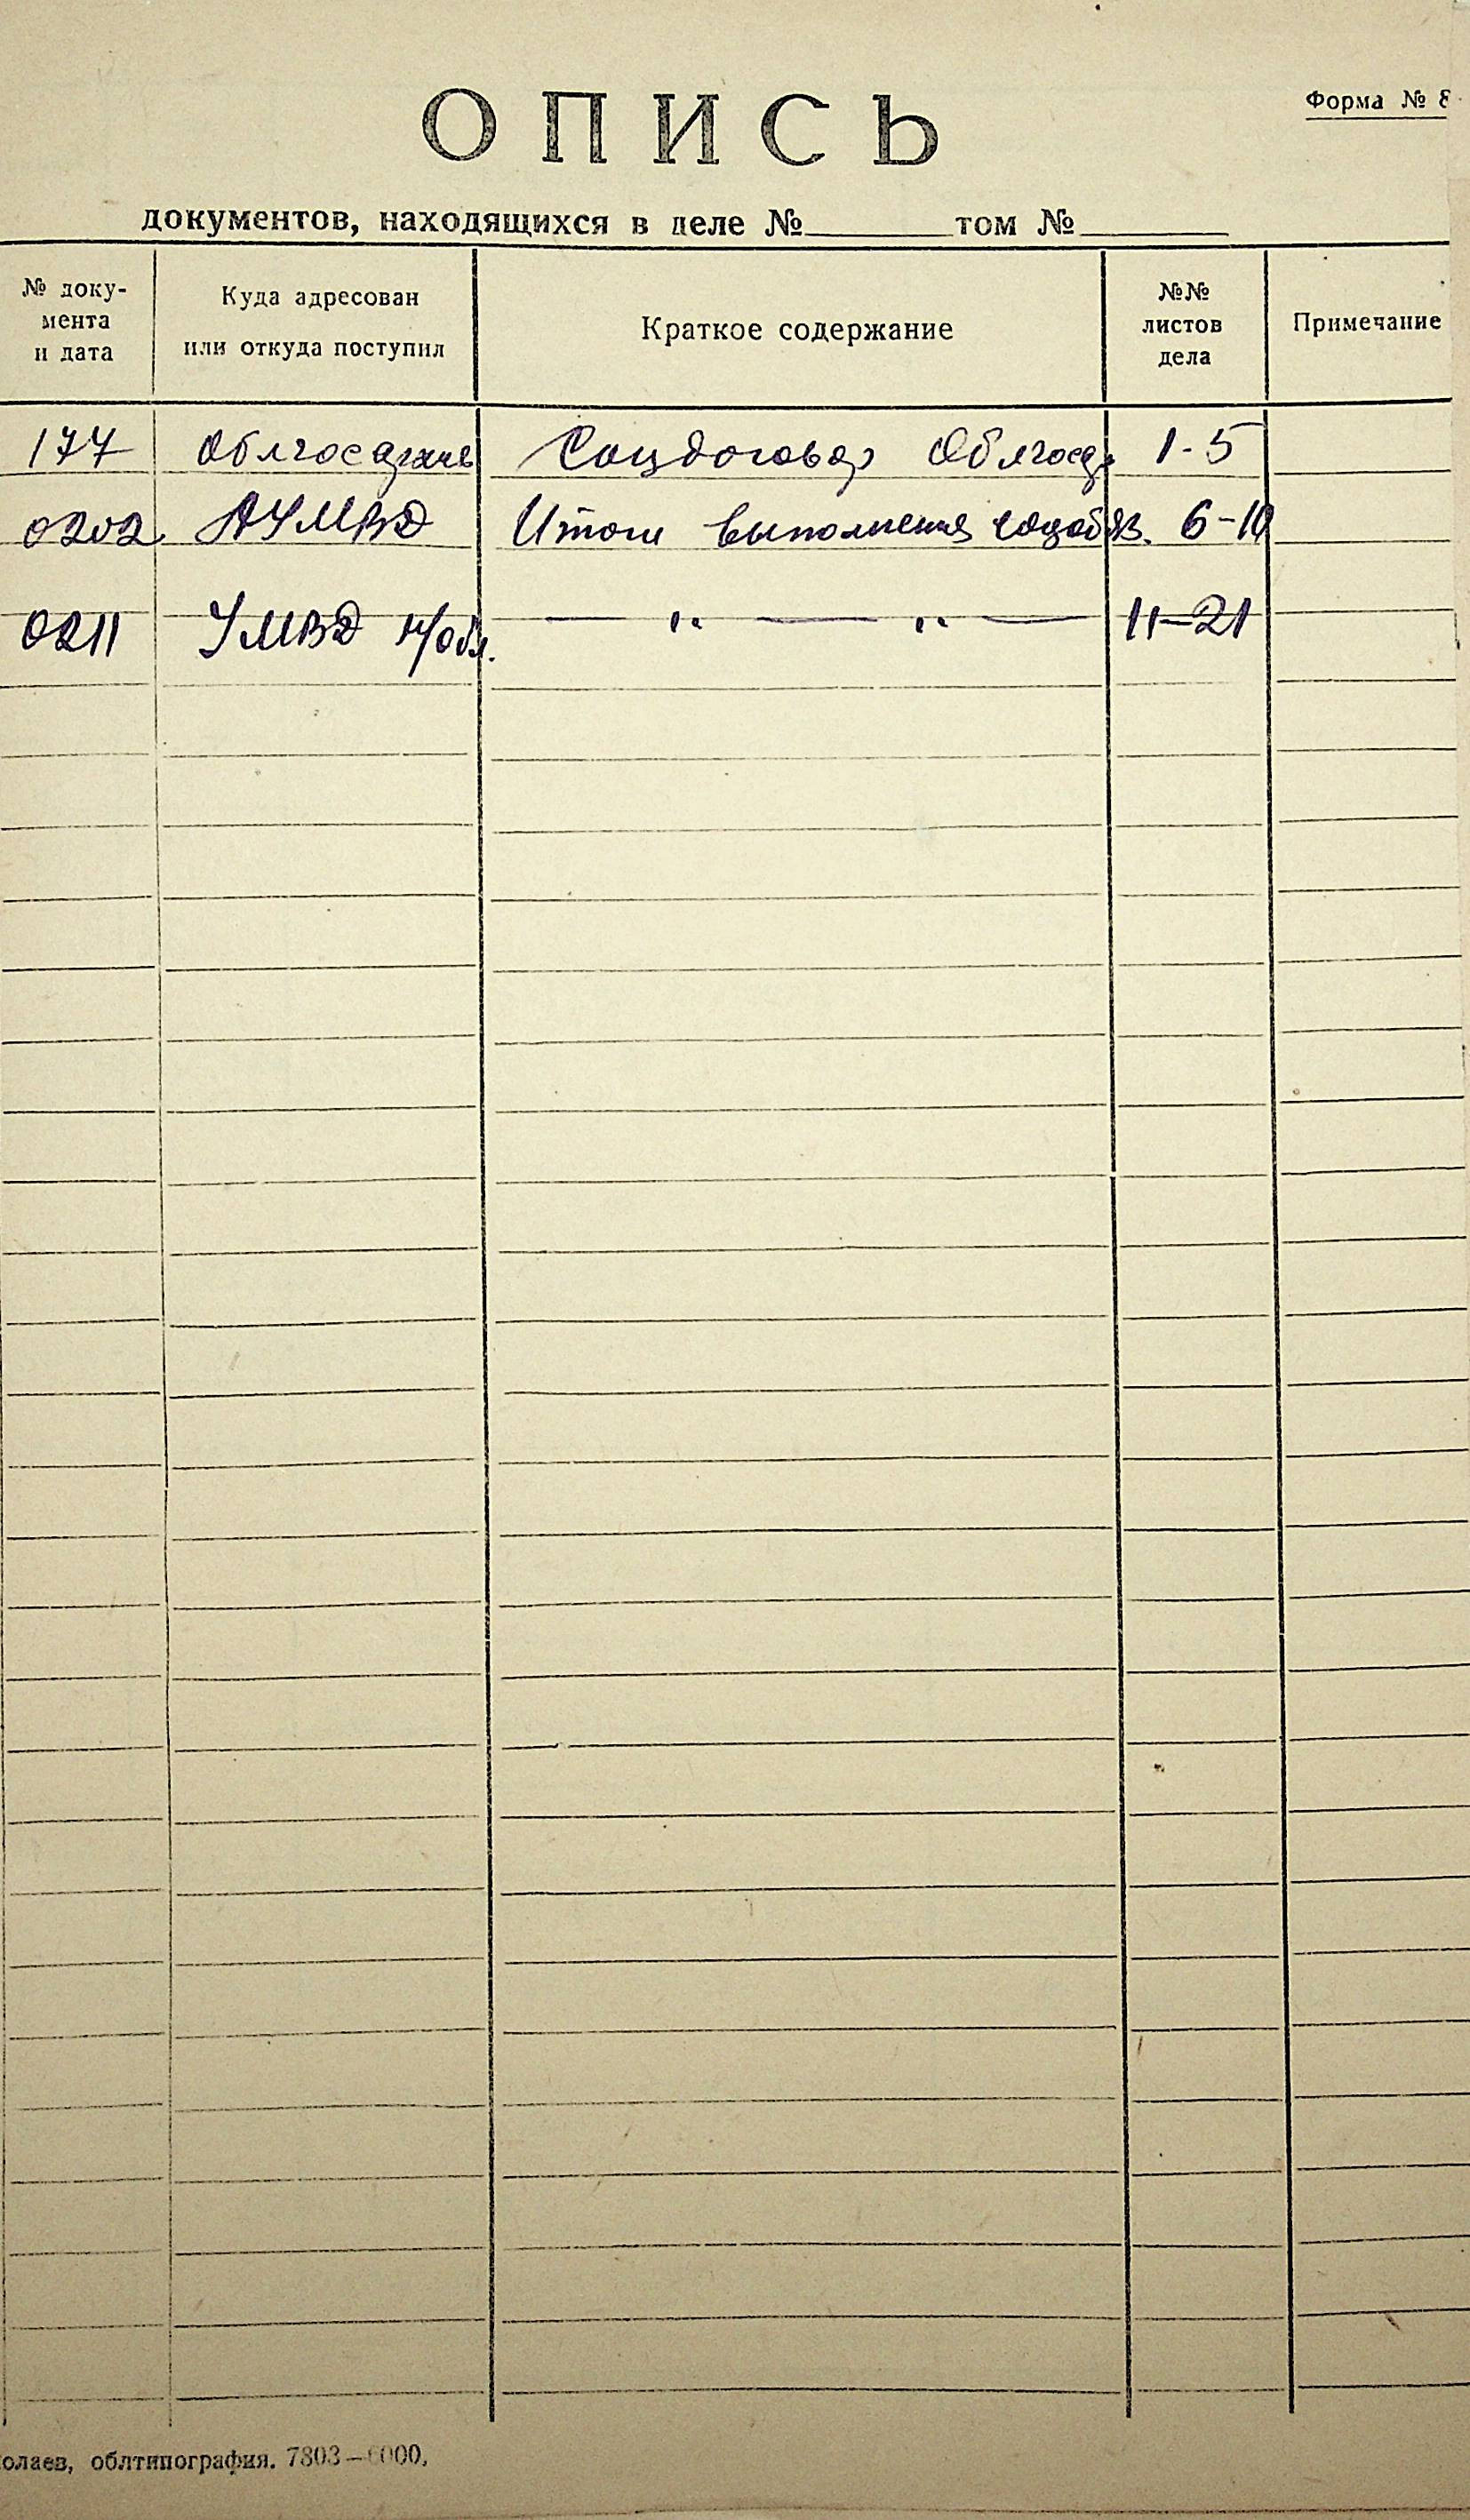 ОПИСЬ
Форма № 8
документов, находящихся в деле № том №
№ доку-
мента
и дата
Куда адресован
или откуда поступил
Краткое содержание
№№
листов
дела
Примечание
177 Облгосархив Соцдоговор Облгосар 1-5
0202 АУМВД Итоги выполнения соцобяз. 6-10
0211 УМВД н/обл. — " — " — 11-21
олаев, облтипография. 7803—6000.